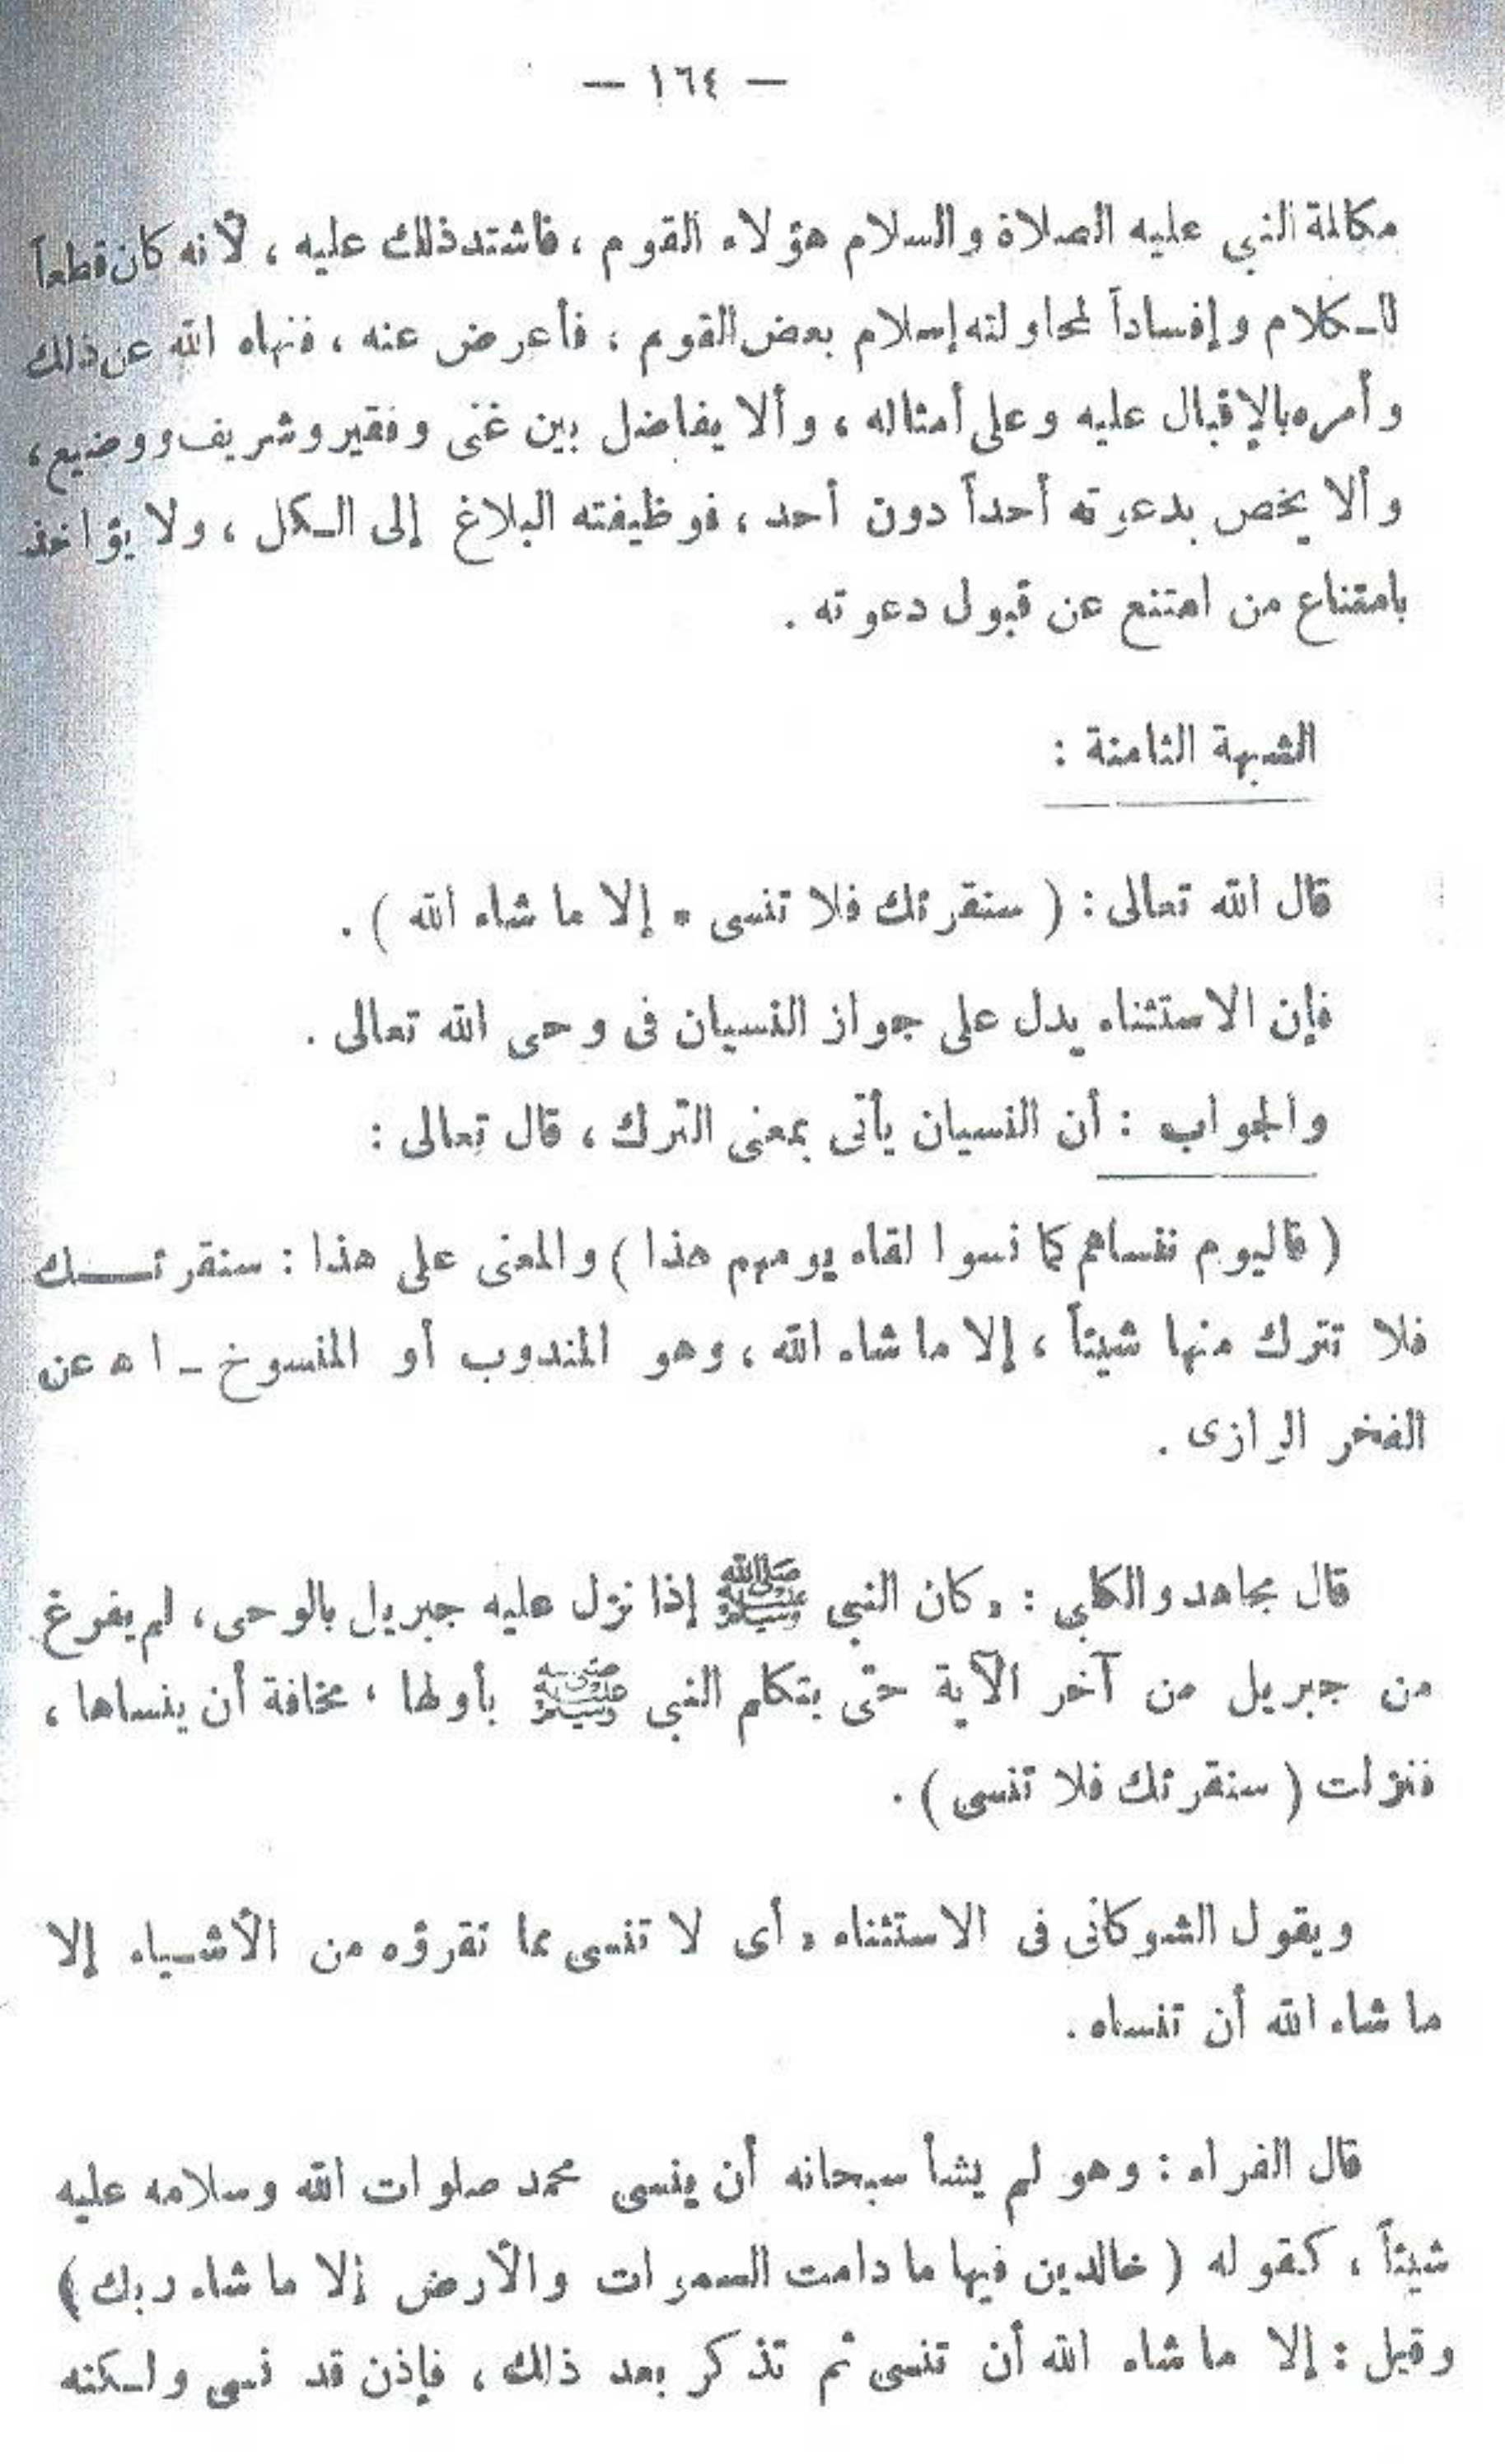 — ١٦٤ —
مكالمة النبي عليه الصلاة والسلام هؤلاء القوم ، فاشتد ذلك عليه ، لأنه كان قطعاً
للـكلام وإفساداً لمحاولته إسلام بعض القوم ، فأعرض عنه ، فنهاه الله عن ذلك
وأمره بالإقبال عليه وعلى أمثاله ، وألا يفاضل بين غنى وفقير وشريف ووضيع ،
وألا يخص بدعوته أحداً دون أحد ، فوظيفته البلاغ إلى الـكل ، ولا يؤاخذ
بامتناع من امتنع عن قبول دعوته .
الشبهة الثامنة :
قال الله تعالى : ( سنقرئك فلا تنسى * إلا ما شاء الله ) .
فإن الاستثناء يدل على جواز النسيان فى وحى الله تعالى .
والجواب : أن النسيان يأتى بمعنى الترك ، قال تعالى :
( فاليوم ننساهم كما نسوا لقاء يومهم هذا ) والمعنى على هذا : سنقرئـــك
فلا تترك منها شيئاً ، إلا ما شاء الله ، وهو المندوب أو المنسوخ ـ ا ه عن
الفخر الرازى .
قال مجاهد والكلبى : « كان النبى ﷺ إذا نزل عليه جبريل بالوحى ، لم يفرغ
من جبريل من آخر الآية حتى يتكلم النبى ﷺ بأولها ، مخافة أن ينساها ،
فنزلت ( سنقرئك فلا تنسى ) .
ويقول الشوكانى فى الاستثناء « أى لا تنسى مما تقرؤه من الأشـياء إلا
ما شاء الله أن تنساه .
قال الفراء : وهو لم يشأ سبحانه أن ينسى محمد صلوات الله وسلامه عليه
شيئاً ، كقوله ( خالدين فيها ما دامت السموات والأرض إلا ما شاء ربك )
وقيل : إلا ما شاء الله أن تنسى ثم تذكر بعد ذلك ، فإذن قد نسى ولـكنه